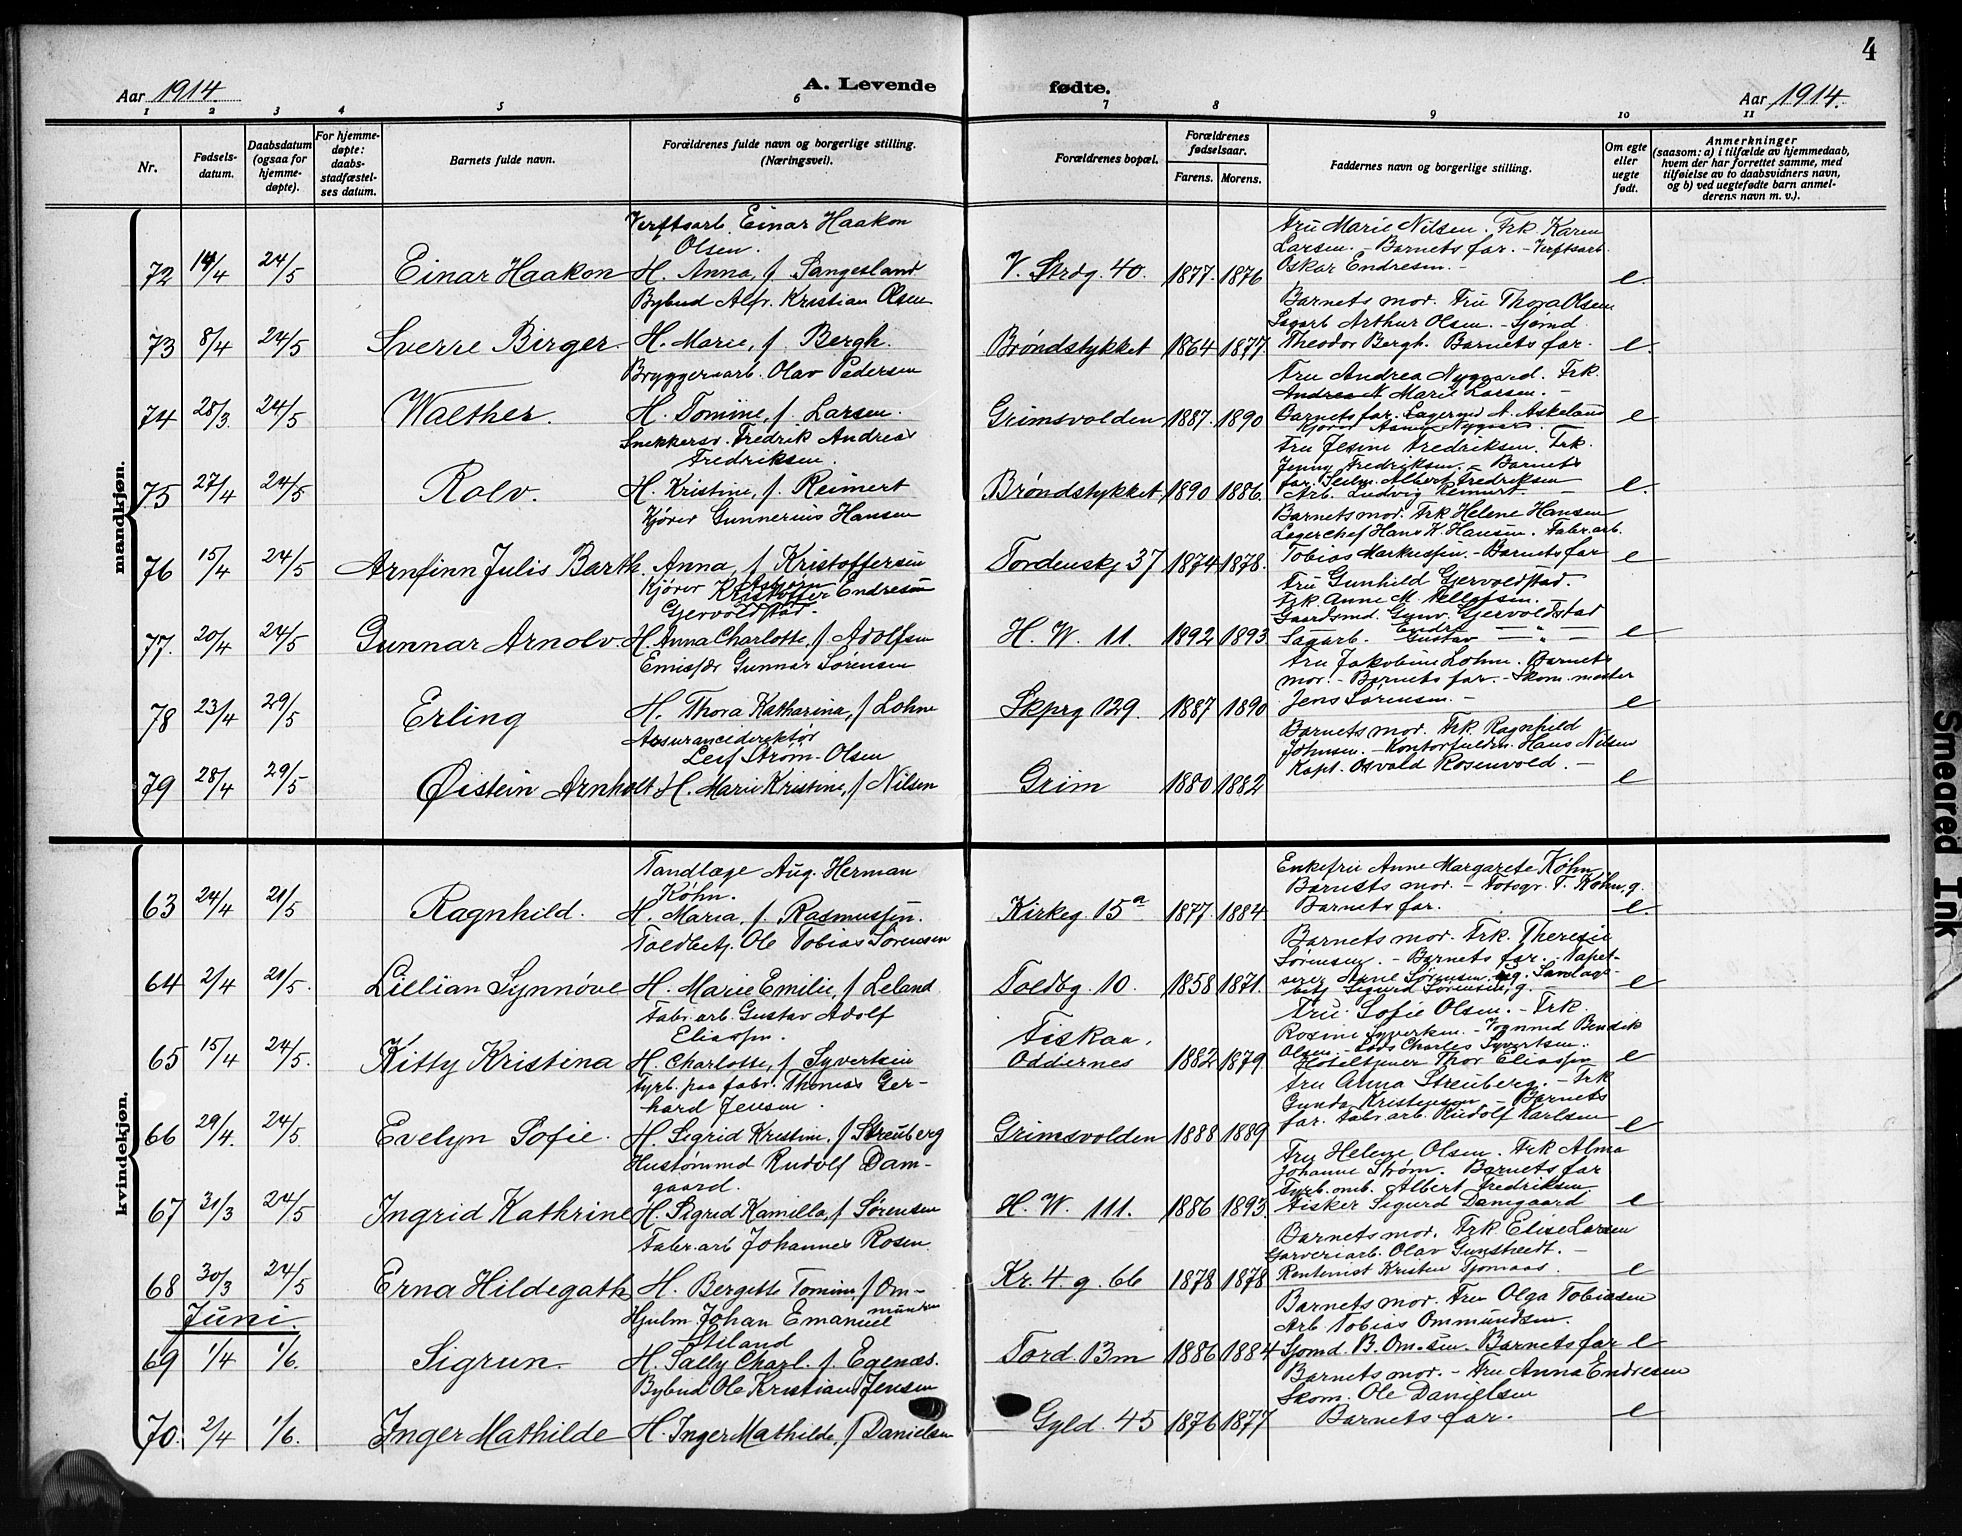 4
Aar 1914.
A. Levende fødte.
Aar 1914.
1 2 3 4 5 6 7 8 9 10 11
Nr.
Fødsels-
datum.
Daabsdatum
(ogsaa for
hjemme-
døpte).
For hjemme-
døpte:
daabs-
stadfæstel-
ses datum.
Barnets fulde navn.
Forældrenes fulde navn og borgerlige stilling.
(Næringsvei).
Forældrenes bopæl.
Forældrenes
fødselsaar.
Farens. Morens.
Faddernes navn og borgerlige stilling.
Om egte
eller
uegte
født.
Anmerkninger
(saasom: a) i tilfælde av hjemmedaab,
hvem der har forrettet samme, med
tilføielse av to daabsvidners navn,
og b) ved uegtefødte barn anmel-
derens navn m. v.).
mandkjøn.
72 14/4 24/5 Einar Haakon
Verftsarb. Einar Haakon
Olsen.
H. Anna, f. Sangesland
V. Strdg. 40. 1877. 1876
Fru Marie Nilsen. Frk. Karen
Larsen. - Barnets far. - Verftsarb.
Oskar Endresen. -
e.
73 8/4 24/5 Sverre Birger.
Bybud Alfr. Kristian Olsen
H. Marie, f. Bergh.
Brøndstykket 1864 1877.
Barnets mor. Fru Thora Olsen
Sagarb. Arthur Olsen. - Sjømd.
Theodor Bergh. Barnets far.
e.
74 28/3 24/5 Walther.
Bryggeriarb. Olav Pedersen
H. Tomine, f. Larsen.
Grimsvolden 1887. 1890
Fru Andrea Nygaard. Frk.
Marie Larsen. -
Barnets far. Lagermd N. Askeland
Nygaard.
e
75 27/4 24/5 Rolv.
Snekkersv. Fredrik Andreas
Fredriksen.
H. Kristine, f. Reimert
Brøndstykket, 1890 1886.
Fru Jesine Fredriksen. Frk.
Jenny Fredriksen. - Barnets
far. Albert Fredriksen
Arb. Ludvig Reimert. -
e.
76 15/4 24/5 Arnfinn Julis Barth.
Kjører Gunnerius Hansen
Anna, f. Kristoffersen
Tordenskj 37 1874 1878.
Barnets mor. Frk Helene Hansen
Lagerchef Hans K. Hansen. Fabr.arb.
Tobias Markussen. - Barnets far
e
77. 20/4 24/5 Gunnar Arnolv.
Kjører Asbjørn Endresen
Gjervoldstad.
H. Anna Charlotte, f. Adolfsen
H. W. 11. 1892 1893.
Fru Gunhild Gjervoldstad.
Frk. Anne M. Kellefsen. -
Gaardsmd. Gunv. Gjervoldstad
Endre
Sagarb. Gustav — " —
e
78 23/4 29/5 Erling
Emissær Gunnar Sørensen
H. Thora Katharina, f Lohne
Skprg 129. 1887 1890
Fru Jakobine Lohne. Barnets
mor. - Barnets far. - Skom. mester
Jens Sørensen. -
e
79 28/4 29/5 Øistein Arnholt
Assurancedirektør
Leif Strøm-Olsen
H. Marie Kristine, f Nilsen
Grim 1880 1882
Barnets mor. Frk. Ragnhild
Johnsen. - Kontorfuldm. Hans Nilsen
Kapt. Osvald Rosenvold. -
e
kvindekjøn.
63 24/4 21/5 Ragnhild.
Tandlæge Aug. Herman
Køhn.
H. Maria, f. Rasmussen.
Kirkeg. 15a 1877. 1884
Enkefru Anne Margarete Køhn
Barnets mor. - Fotogr. T. Køhn, g.
Barnets far.
e.
64 2/4 21/5. Lillian Synnøve
Toldbetj. Ole Tobias Sørensen
H. Marie Emilie, f Leland
Toldbg. 10. 1858 1871.
Barnets mor. Frk. Theresie
Sørensen. - Barnets far. - Tapet-
serer Arne Sørensen,
Sigurd Sørensen, g.
e
65 15/4 24/5. Kitty Kristina
Fabr. arb. Gustav Adolf
Eliassen.
H. Charlotte, f. Syvertsen
Fiskaa,
Oddernes 1882 1879.
Fru Sofie Olsen. - Frk.
Rosine Syvertsen. - Vognmd Bendik
Olsen. - Lods Charles Syvertsen.
Hoteltjener Thor Eliassen
e
66 29/4. 24/5 Evelyn Sofie.
Fyrb. paa fabr. Thomas Ger-
hard Jensen.
H. Sigrid Kristine, f Streuberg
Grimsvolden 1888 1889
Fru Anna Streuberg. - Frk
Gunda Kristensen. - Barnets
far. Fabr. arb. Rudolf Karlsen
e
67 31/3 24/5 Ingrid Kathrine
Hustømmd Rudolf Dam-
gaard.
H. Sigrid Kamilla, f Sørensen
H. W. 111. 1886 1893.
Fru Helene Olsen. Frk Alma
Johanne Strøm. Barnets far
Fyrb. omb. Albert Fredriksen
Fisker Sigurd Damgaard
e
68 30/3 24/5 Erna Hildegath
Fabr. arb Johannes Rosen.
H. Bergitte Tomine f Om-
mundsen
Kr. 4. g. 66 1878 1878
Barnets mor. Frk Elise Larsen
Garveriarb. Olav Gunstveit. -
Rentenist Kristen Tjomaas.
e
Juni.
69 1/4 1/6. Sigrun.
Hjulm. Johan Emanuel
Stiland
H. Sally Charl. f. Egenæs.
Tord. 13m 1886 1884
Barnets mor. Fru Olga Tobiasen
Arb. Tobias Ommundsen.
Sjømd. B. Om.sen. Barnets far
e
70. 2/4 1/6. Inger Mathilde
Bybud Ole Kristian Jensen
H. Inger Mathilde, f Danielsen
Gyld. 45 1876 1877
Barnets mor. - Fru Anna Endresen
Skom. Ole Danielsen
Barnets far.
e
Smeared Ink